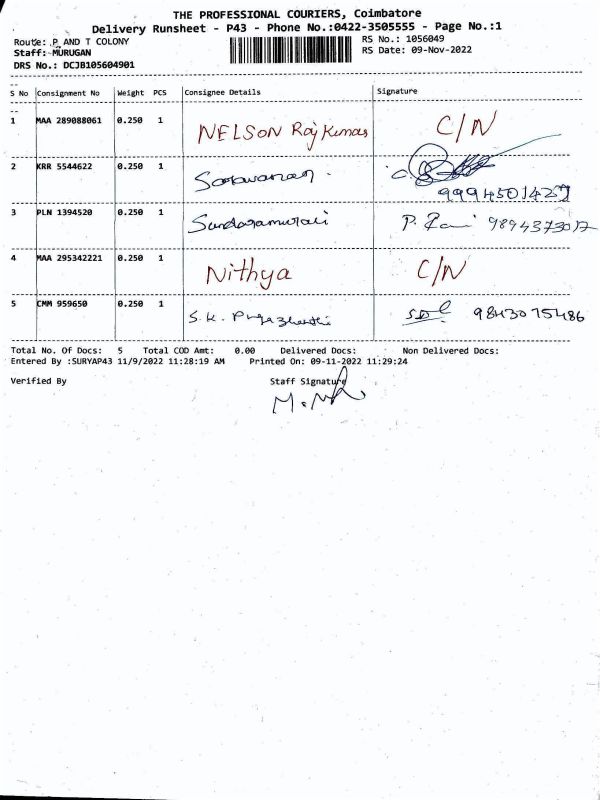 THE PROFESSIONAL COURIERS, Coimbatore
Delivery Runsheet - P43 - Phone No.:0422-3505555 - Page No.:1
Route: P AND T COLONY
RS No.: 1056049
Staff: MURUGAN
RS Date: 09-Nov-2022
DRS No.: DCJB105604901
S No Consignment No Weight PCS Consignee Details Signature
1 MAA 289088061 0.250 1 NELSON Raj Kumar C/N
2 KRR 5544622 0.250 1 Saravanan
3 PLN 1394520 0.250 1 Sundaramurali P. Rani
4 MAA 295342221 0.250 1 Nithya C/N
5 CMM 959650 0.250 1 S.K. 9843075486
Total No. Of Docs: 5 Total COD Amt: 0.00 Delivered Docs: Non Delivered Docs:
Entered By :SURYAP43 11/9/2022 11:28:19 AM Printed On: 09-11-2022 11:29:24
Verified By Staff Signature